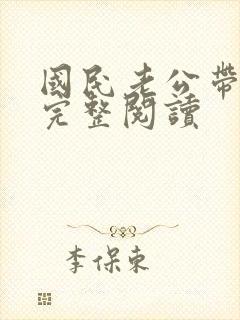 國民老公帶
完整閱讀
李保東